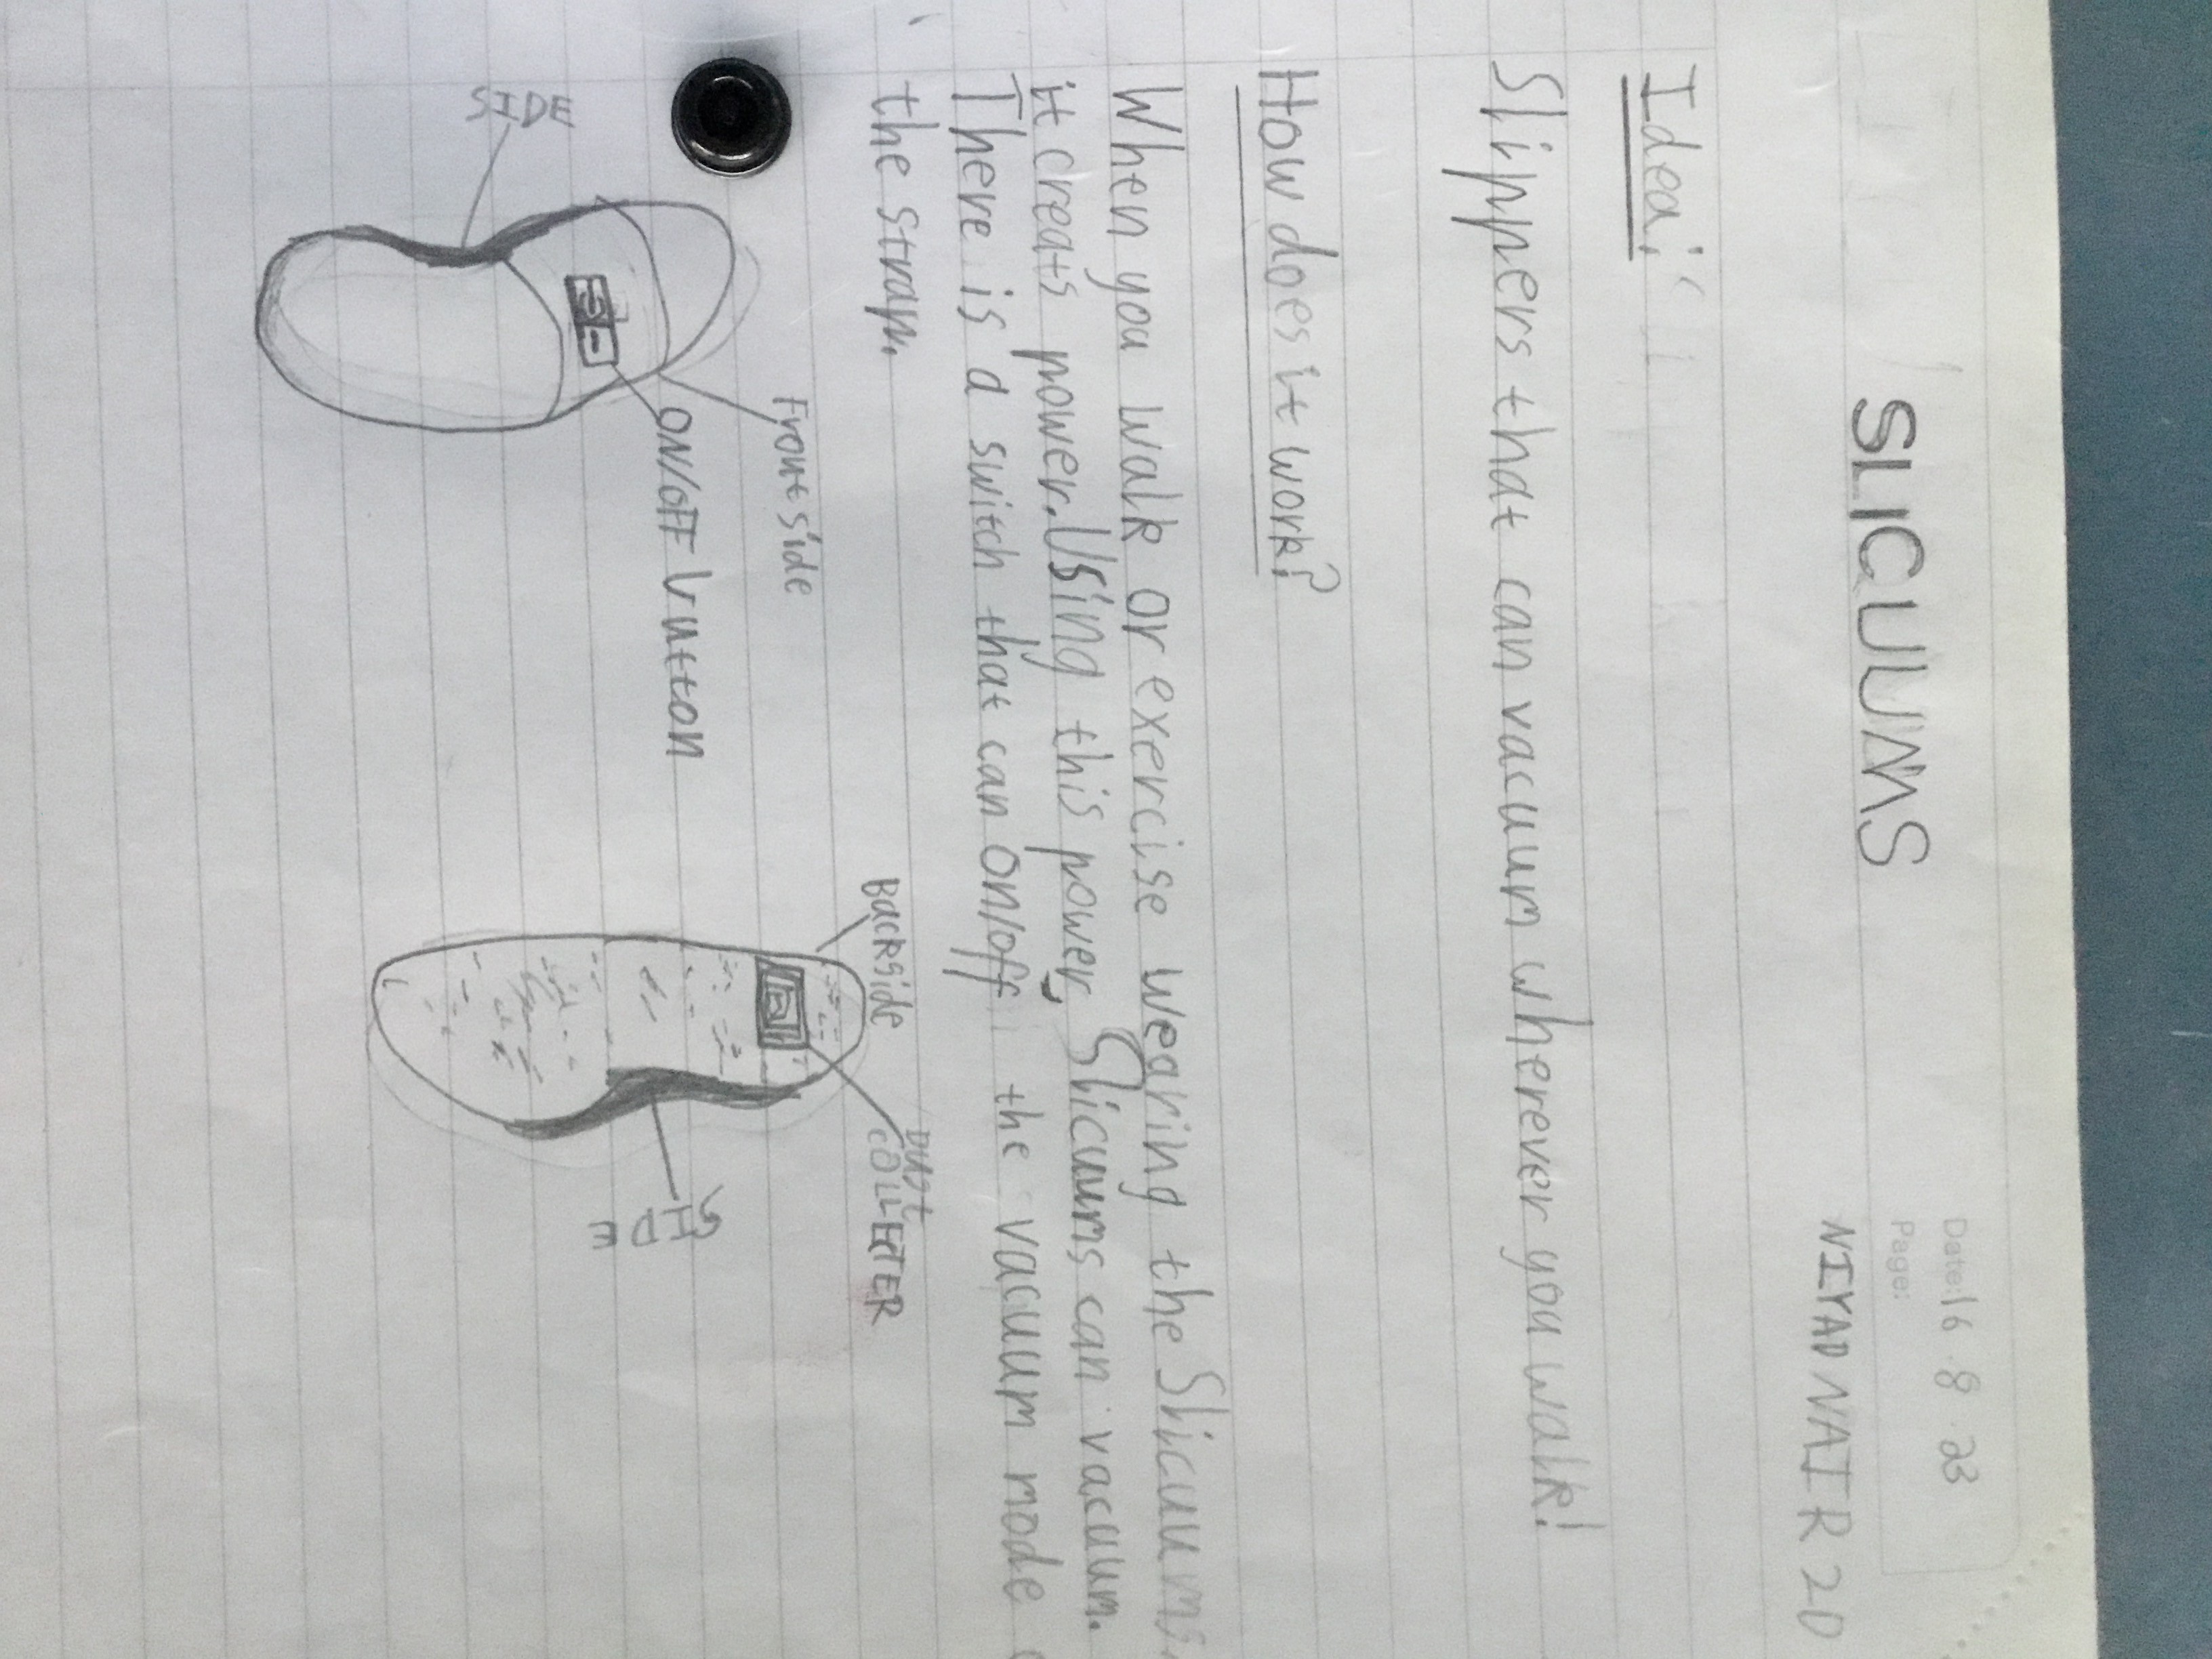 Date: 16 8 23
Page:
NIYAD NAIR 2D
SLICUUMS
Idea:
Slippers that can vacuum wherever you walk!
How does it work?
When you walk or exercise wearing the Slicuums
it creats power. Using this power, Slicuums can vacuum.
There is a switch that can on/off the vacuum mode
the strap.
Front side
ON/OFF button
SIDE
Backside
DUst
COLLECTER
SIDE